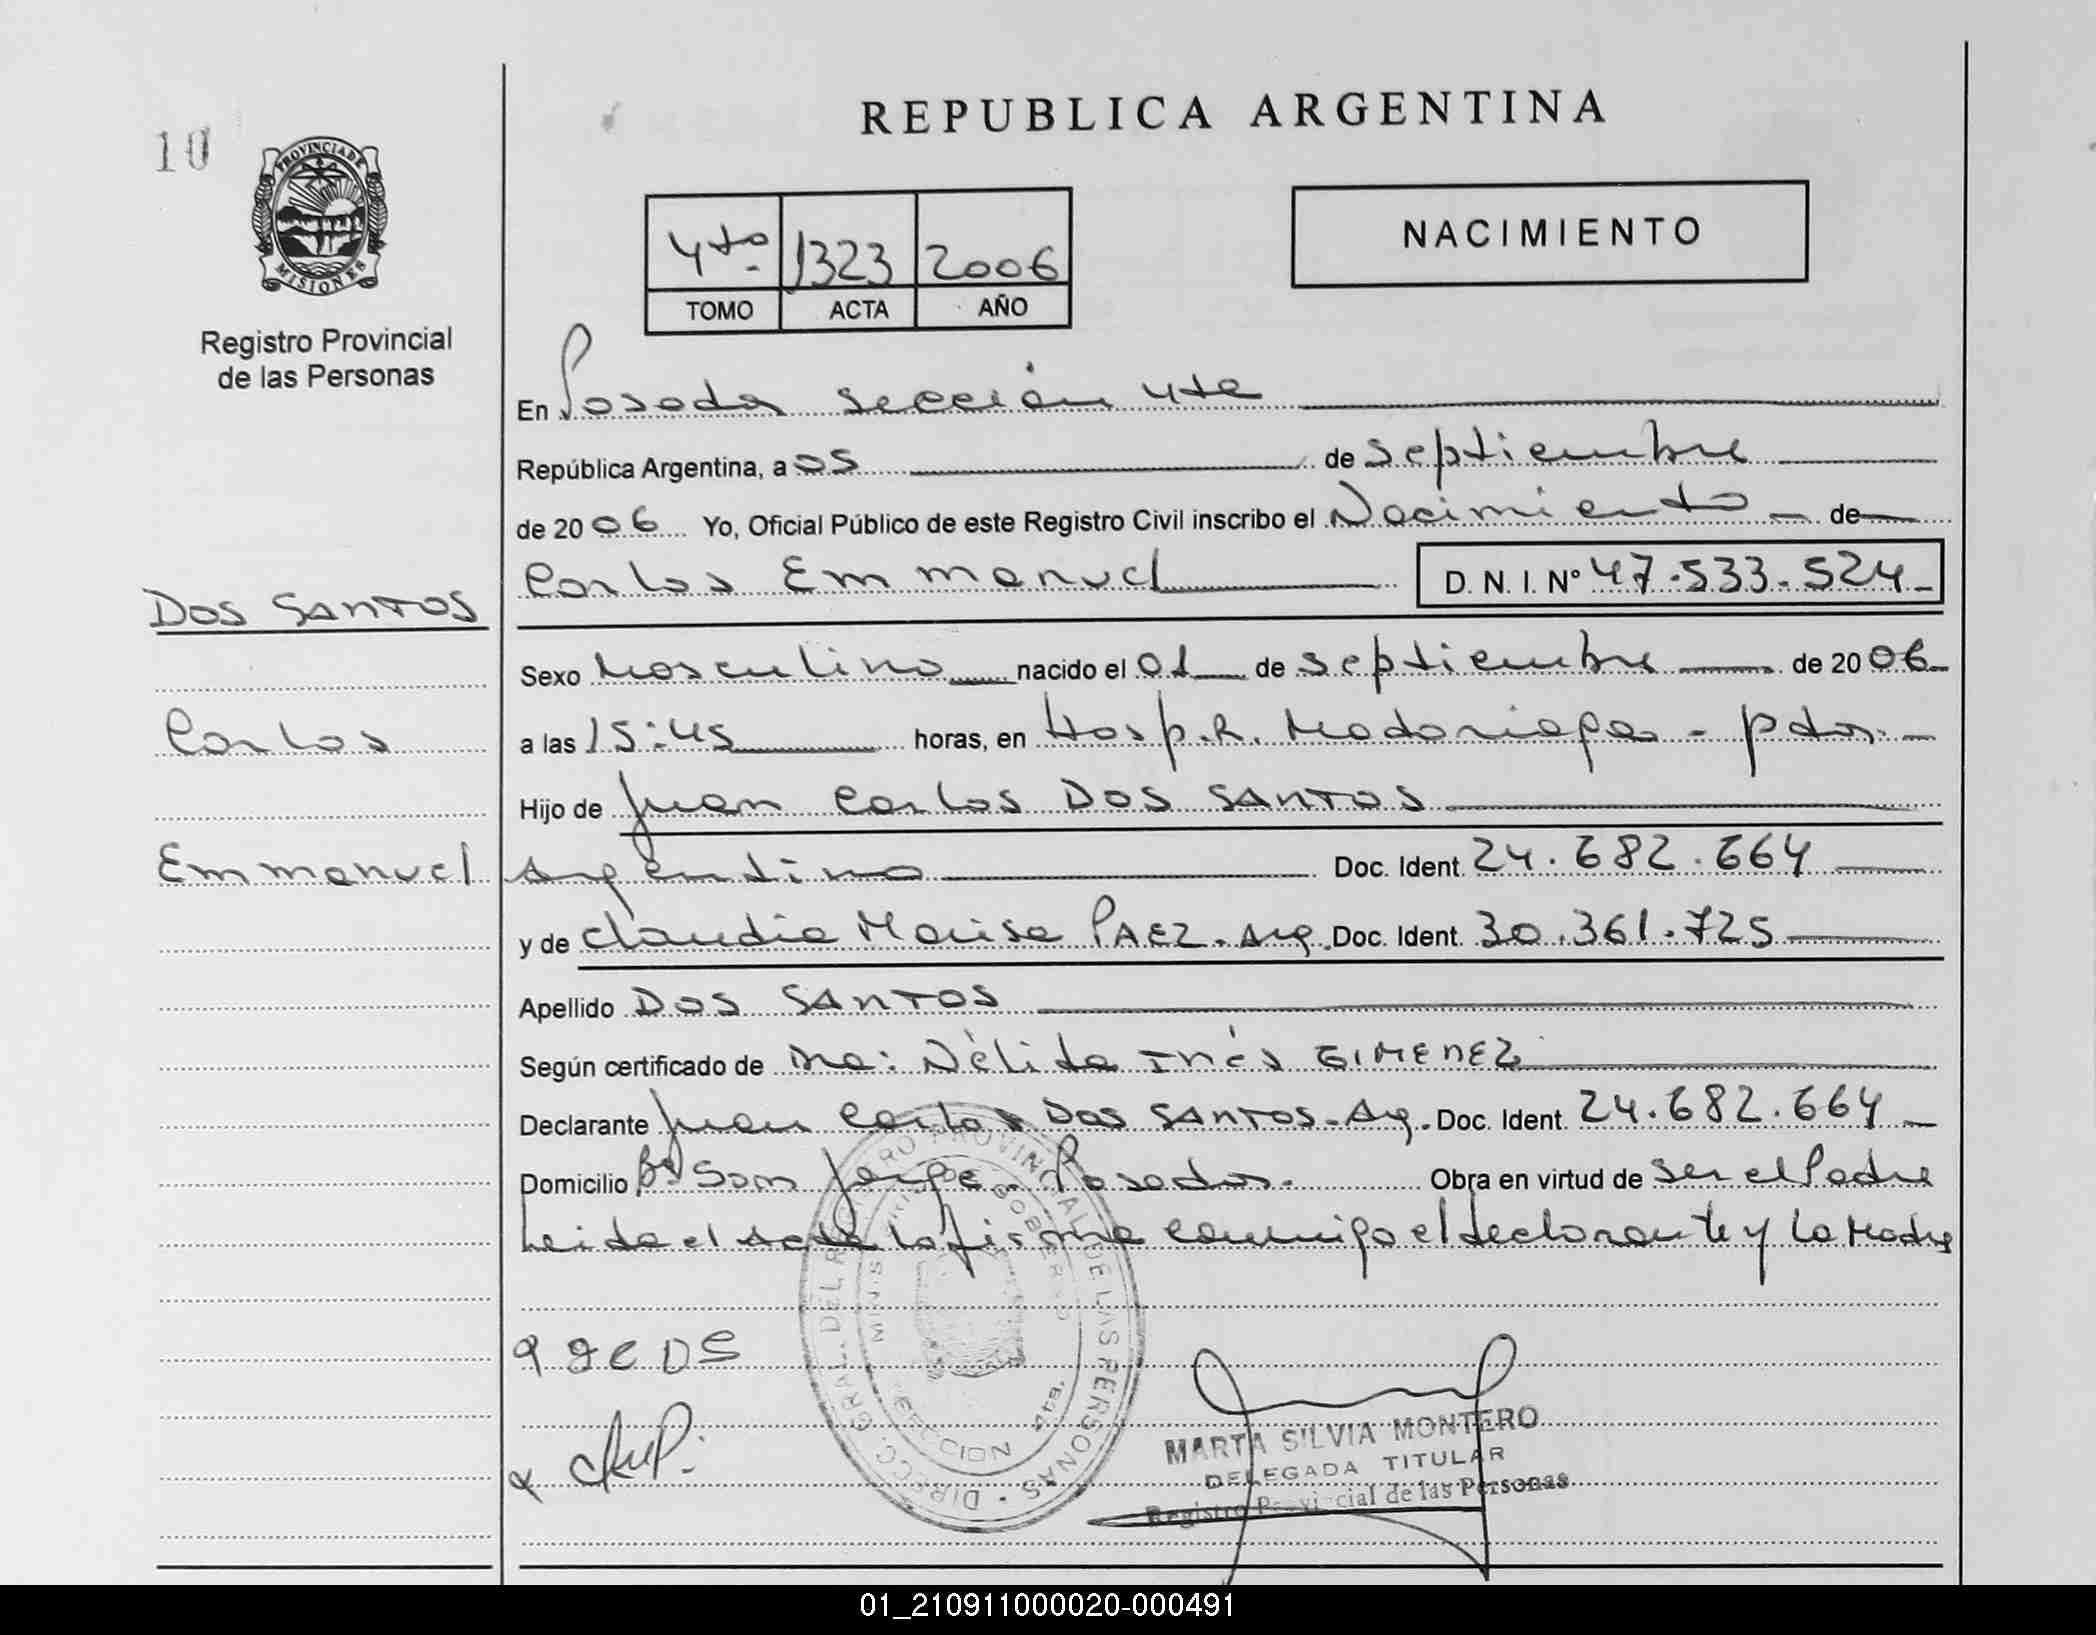 REPUBLICA ARGENTINA
10
PROVINCIA DE MISIONES
Registro Provincial
de las Personas
4to 1323 2006
TOMO ACTA AÑO
NACIMIENTO
En Posadas sección 4ta
República Argentina, a 05 de septiembre
de 2006 Yo, Oficial Público de este Registro Civil inscribo el Nacimiento de
Carlos Emmanuel D. N. I. N° 47.533.524
DOS SANTOS
Sexo Masculino nacido el 01 de septiembre de 2006
Carlos
a las 15:45 horas, en Hosp. R. Madariaga - pdas.
Hijo de Juan Carlos DOS SANTOS
Emmanuel
Argentino Doc. Ident. 24.682.664
y de Claudia Marisa PAEZ. Arg. Doc. Ident. 30.361.725
Apellido DOS SANTOS
Según certificado de Nélida Inés GIMENEZ
Declarante Juan Carlos DOS SANTOS. Arg. Doc. Ident. 24.682.664
Domicilio Bº San Jorge - Posadas. Obra en virtud de ser el Padre
Leida el Acta la firma conmigo el declarante y la Madre
JCDS
DIRECC. GRAL. DEL REGISTRO PROVINCIAL DE LAS PERSONAS
MINISTERIO DE GOBIERNO
SECCION 4ta.
MARTA SILVIA MONTERO
DELEGADA TITULAR
Registro Provincial de las Personas
01_210911000020-000491